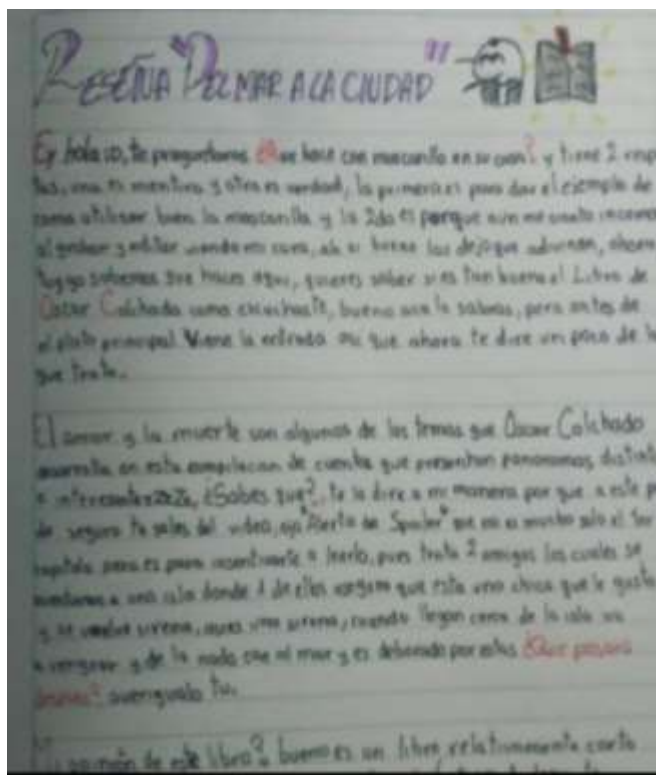 RESEÑA "DEL MAR A LA CIUDAD"
Ey hola :0, te preguntaras ¿Que hace con mascarilla en su casa? y tiene 2 resp
tas, una es mentira y otra es verdad, la primera es para dar el ejemplo de
como utilizar bien la mascarilla y la 2da es porque aun me siento incomo
al grabar y editar viendo mi cara, ah si bueno los dejo que adivinen, ahora
sabemos que haces aqui, quieres saber si es tan bueno el Libro de
Oscar Colchado como escuchaste, bueno aca lo sabras, pero antes de
el plato principal Viene la entrada asi que ahora te dire un poco de lo
que trata.
El amor y la muerte son algunos de los temas que Oscar Colchado
desarrolla en esta compilacion de cuentos que presentan panoramas distint
e interesantezzZzZz, ¿Sabes que?, te lo dire a mi manera por que a este p
de seguro te sales del video, ojo "Alerta de Spoiler" que no es mucho solo el 1er
capitulo pero es para incentivarte a leerlo, pues trata 2 amigos los cuales se
aventuran a una isla donde 1 de ellos asegura que esta una chica que le gusta
y se vuelve sirena, pues una sirena, cuando llegan cerca de la isla va
a vengear y de la nada cae al mar y es deborado por estas ¿Que pasara
despues? averigualo tu.
opinión de este libro? bueno es un libro relativamente corto